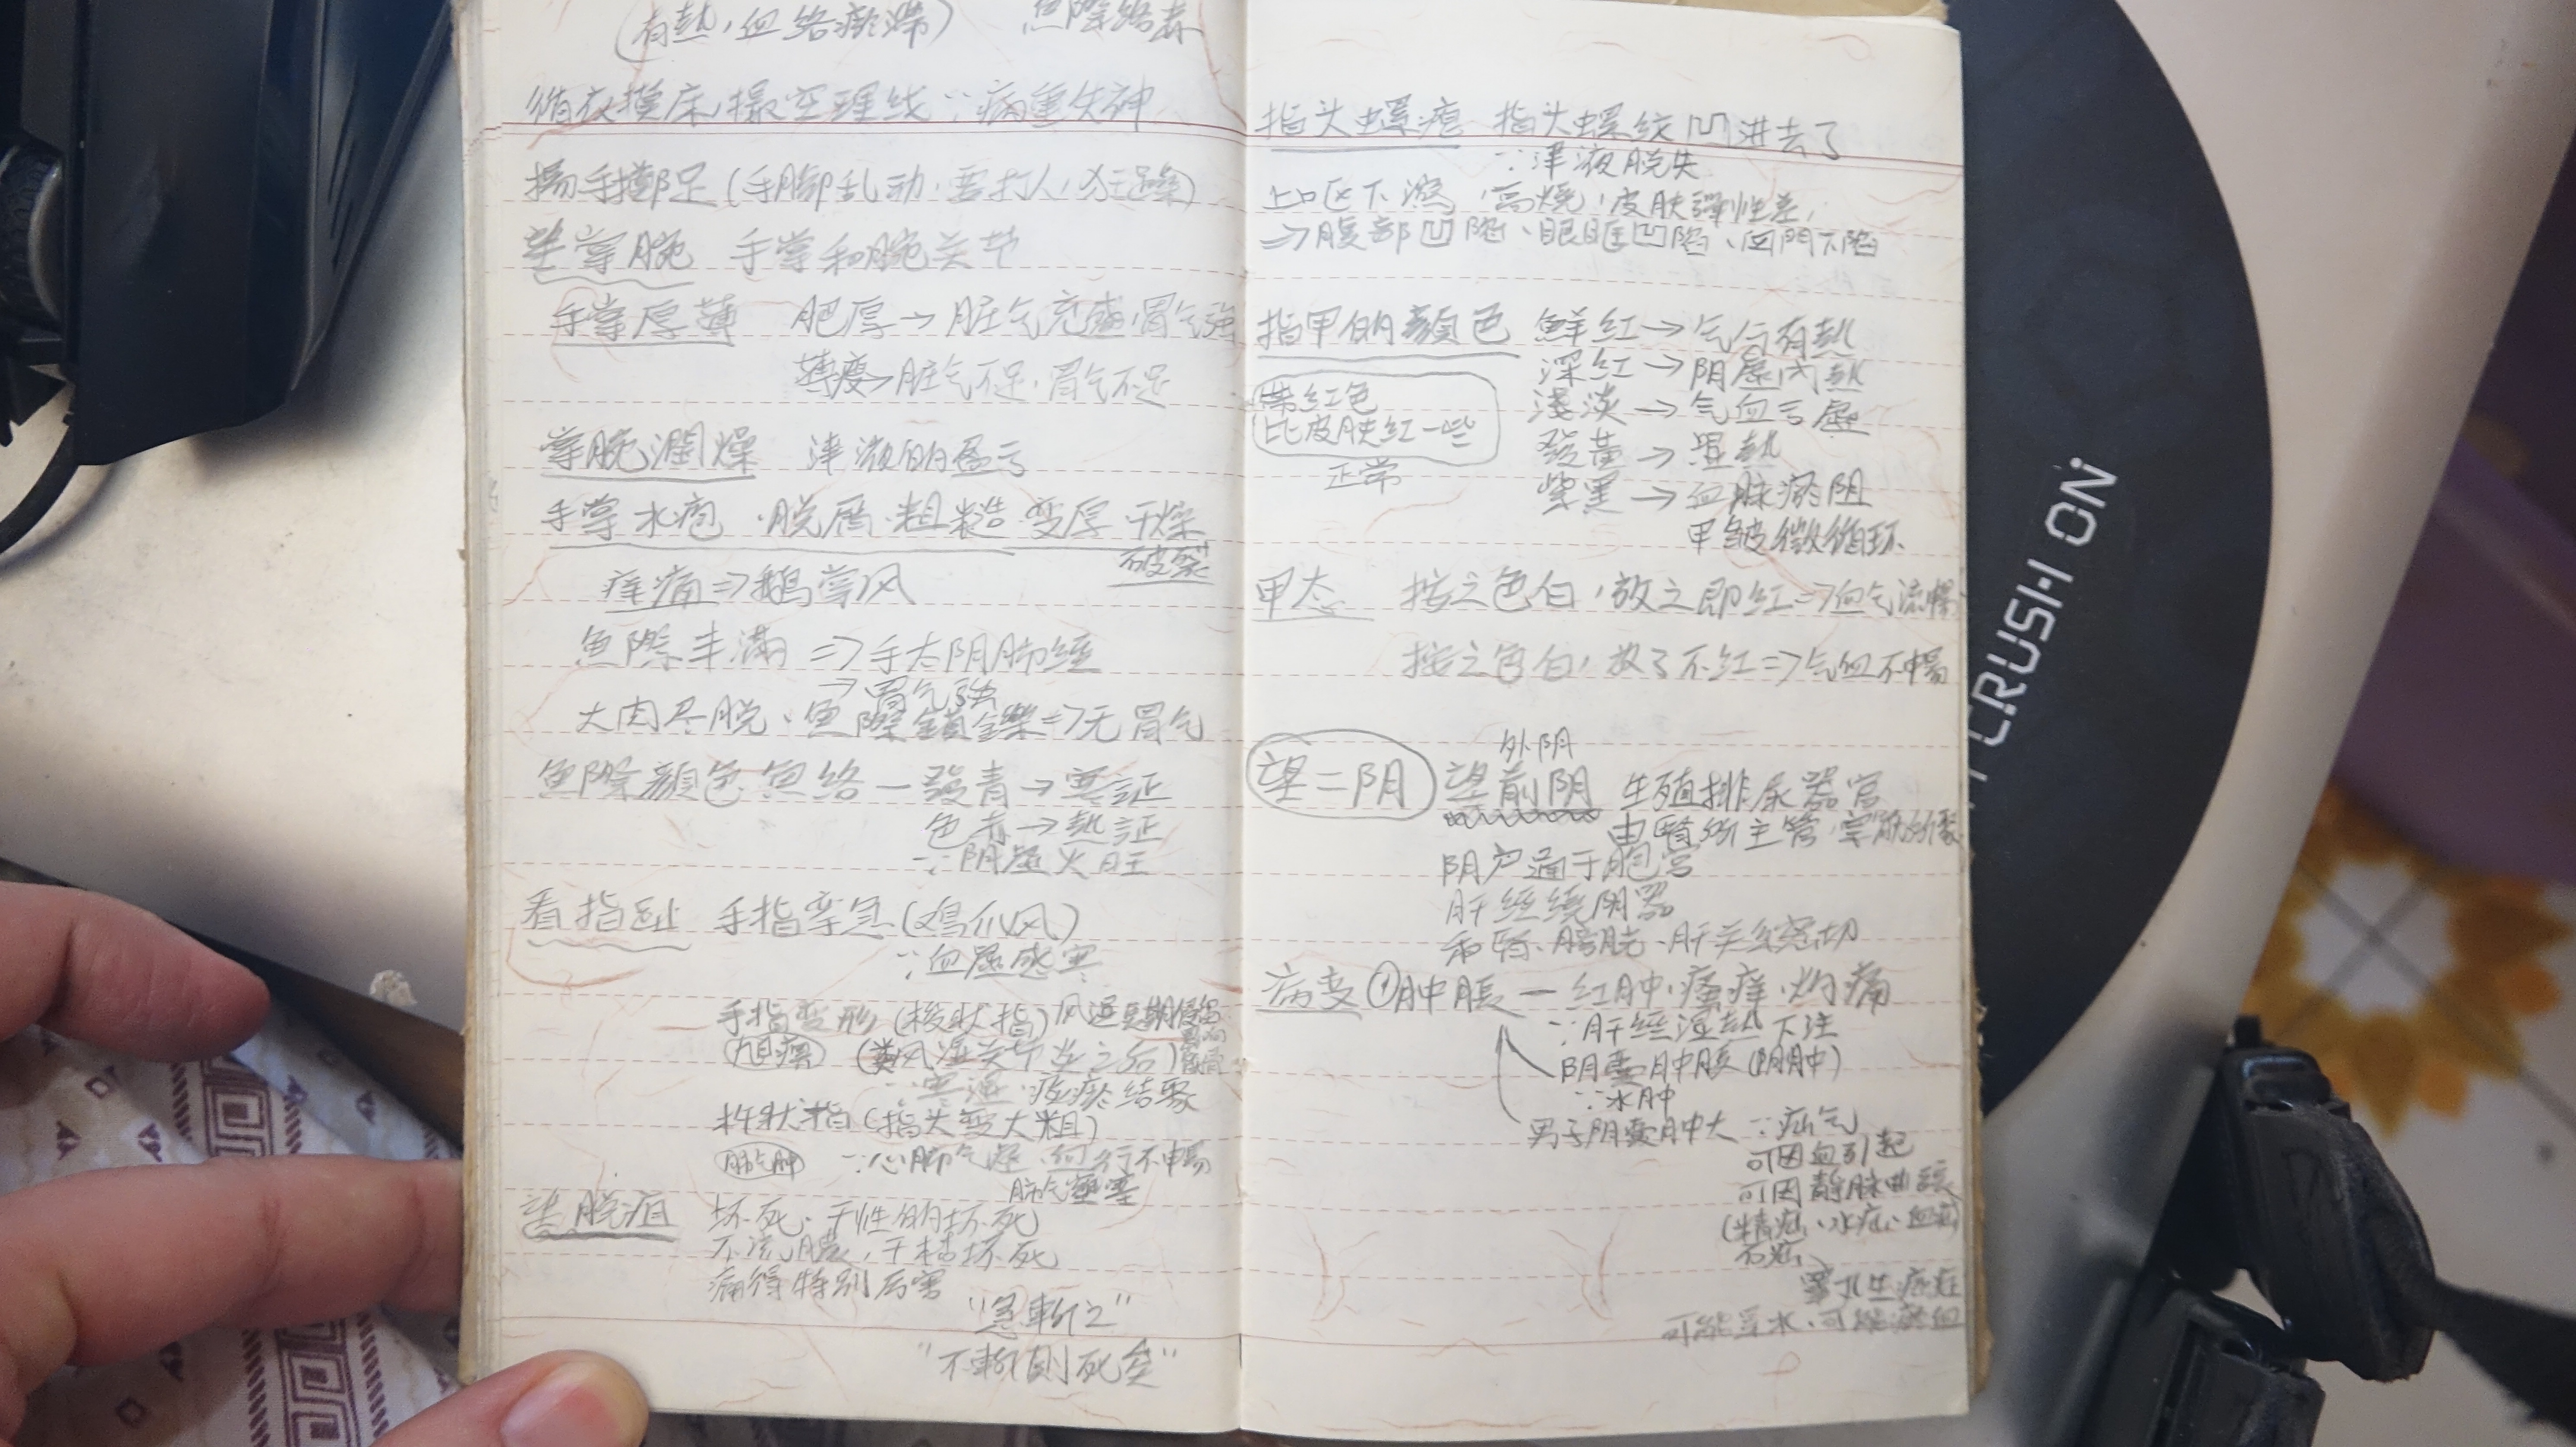 (有熱，血络瘀滞) 魚際络
循衣摸床，撮空理线 ∵病重失神
揚手擲足(手脚乱动，要打人，狂躁)
望掌腕 手掌和腕关节
手掌厚薄 肥厚→脏气充盛，胃气強
薄瘦→脏气不足，胃气不足
掌腕潤燥 津液的盈亏
手掌水疱，脱屑，粗糙，变厚，干燥
破裂
痒痛⇒鹅掌风
魚際丰滿 ⇒手太阴肺經
→胃气強
大肉尽脱、魚際鎖鑠⇒无胃气
魚際顏色 魚络—發青→寒証
色赤→熱証
∵阴虛火旺
看指趾 手指挛急(鸡爪风)
∵血虛感寒
手指变形(梭状指) 风湿
(类风湿关节炎之后)
∵寒湿，痰瘀结聚
杵状指(指头变大粗)
肺气肿 ∵心肺气虛，血行不暢
肺气壅塞
望脱疽 坏死、干性的坏死
不流膿，干枯坏死
痛得特别厉害
"急斬之"
"不斬則死矣"
指头螺瘪 指头螺纹凹进去了
∵津液脱失
上吐下瀉，高燒，皮肤彈性差，
⇒腹部凹陷、眼眶凹陷、囟門下陷
指甲的顏色 鮮紅→气分有熱
深紅→阴虛内熱
帶紅色 淺淡→气血亏虛
比皮肤紅一些 發黃→濕熱
正常 紫黑→血脉瘀阻
甲皱微循环
甲态 按之色白，放之即紅⇒血气流暢
按之色白，放了不紅⇒气血不暢
外阴
望二阴 望前阴 生殖排尿器官
由腎所主管，宗筋所聚
阴户通于胞宫
肝經繞阴器
和腎、膀胱、肝关系密切
病变①肿脹—紅肿，瘙痒，灼痛
∵肝經湿熱下注
阴囊肿脹(阴肿)
∵水肿
男子阴囊肿大 ∵疝气
可因血引起
可因静脉曲張
(精疝、水疝、血疝
石疝
睪丸生癌症
可能